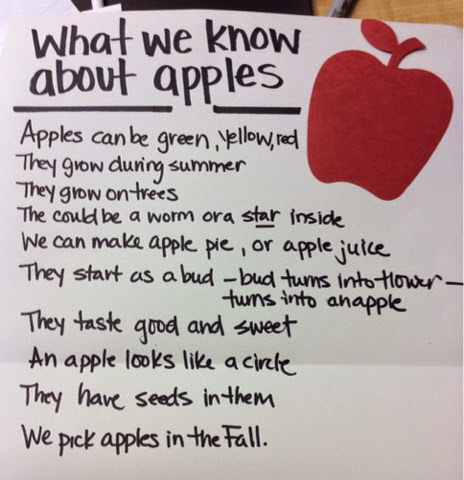 What we know
about apples
Apples can be green, yellow, red
They grow during summer
They grow on trees
The could be a worm or a star inside
We can make apple pie, or apple juice
They start as a bud - bud turns into flower -
turns into an apple
They taste good and sweet
An apple looks like a circle
They have seeds in them
We pick apples in the Fall.